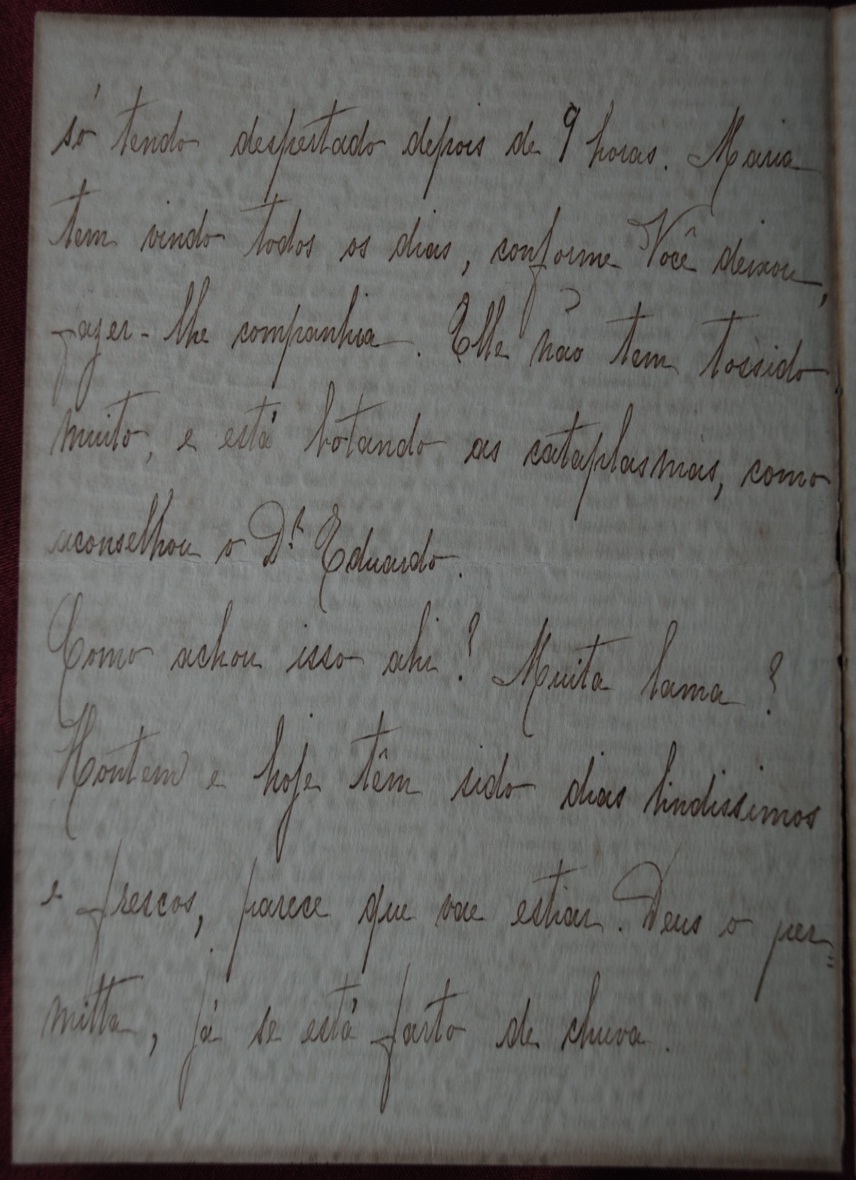 só tendo despertado depois de 9 horas. Maria
tem vindo todos os dias, conforme Você deixou,
fazer-lhe companhia. Elle não tem tossido
muito, e está botando as cataplasmas, como
aconselhou o Dr. Eduardo.
Como achou isso ahi? Muita lama?
Hontem e hoje têm sido dias lindissimos
e frescos, parece que vae estiar. Deus o per=
mitta, já se está farto de chuva.